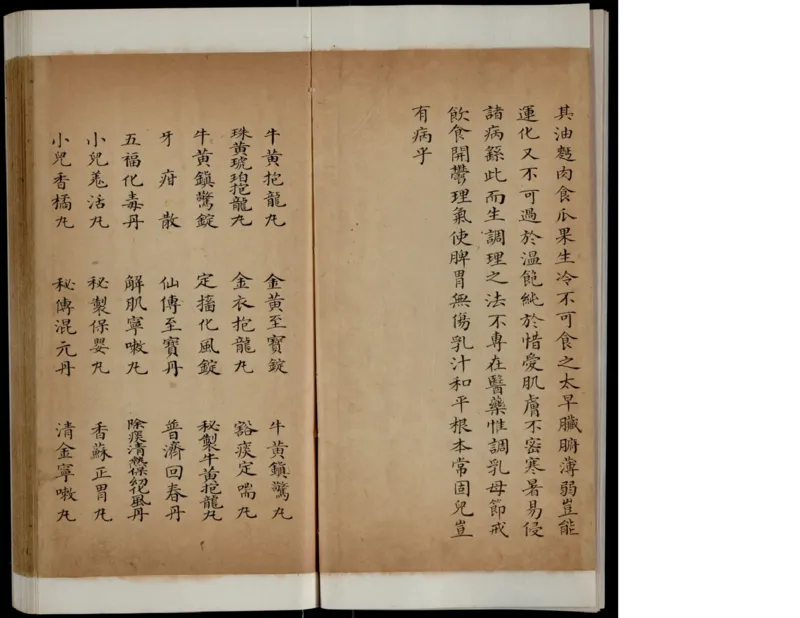 其油麪肉食瓜果生冷不可食之太早臟腑薄弱豈能
運化又不可過於溫飽純於惜愛肌膚不密寒暑易侵
諸病繇此而生調理之法不專在醫藥惟調乳母節戒
飲食開鬱理氣使脾胃無傷乳汁和平根本常固兒豈
有病乎
牛黃抱龍丸 金黃至寶錠 牛黃鎮驚丸
珠黃琥珀抱龍丸 金衣抱龍丸 豁痰定喘丸
牛黃鎮驚錠 定搐化風錠 秘製牛黃抱龍丸
牙疳散 仙傳至寶丹 普濟回春丹
五福化毒丹 解肌寧嗽丸 除痰清熱保幼化風丹
小兒羌活丸 秘製保嬰丸 香蘇正胃丸
小兒香橘丸 秘傳混元丹 清金寧嗽丸